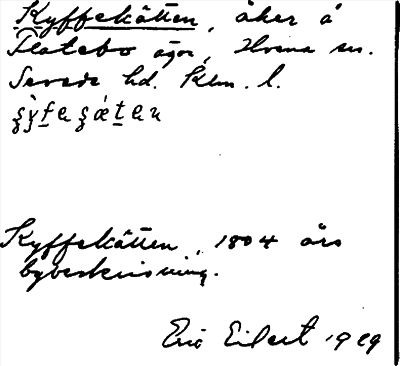 Kyffekätten, åker å
Flatebo ägor, Hvena sn.
Sevede hd. Klm. l.
Kyffekätten, 1804 års
bybeskrivning.
Eric Eilert 1929